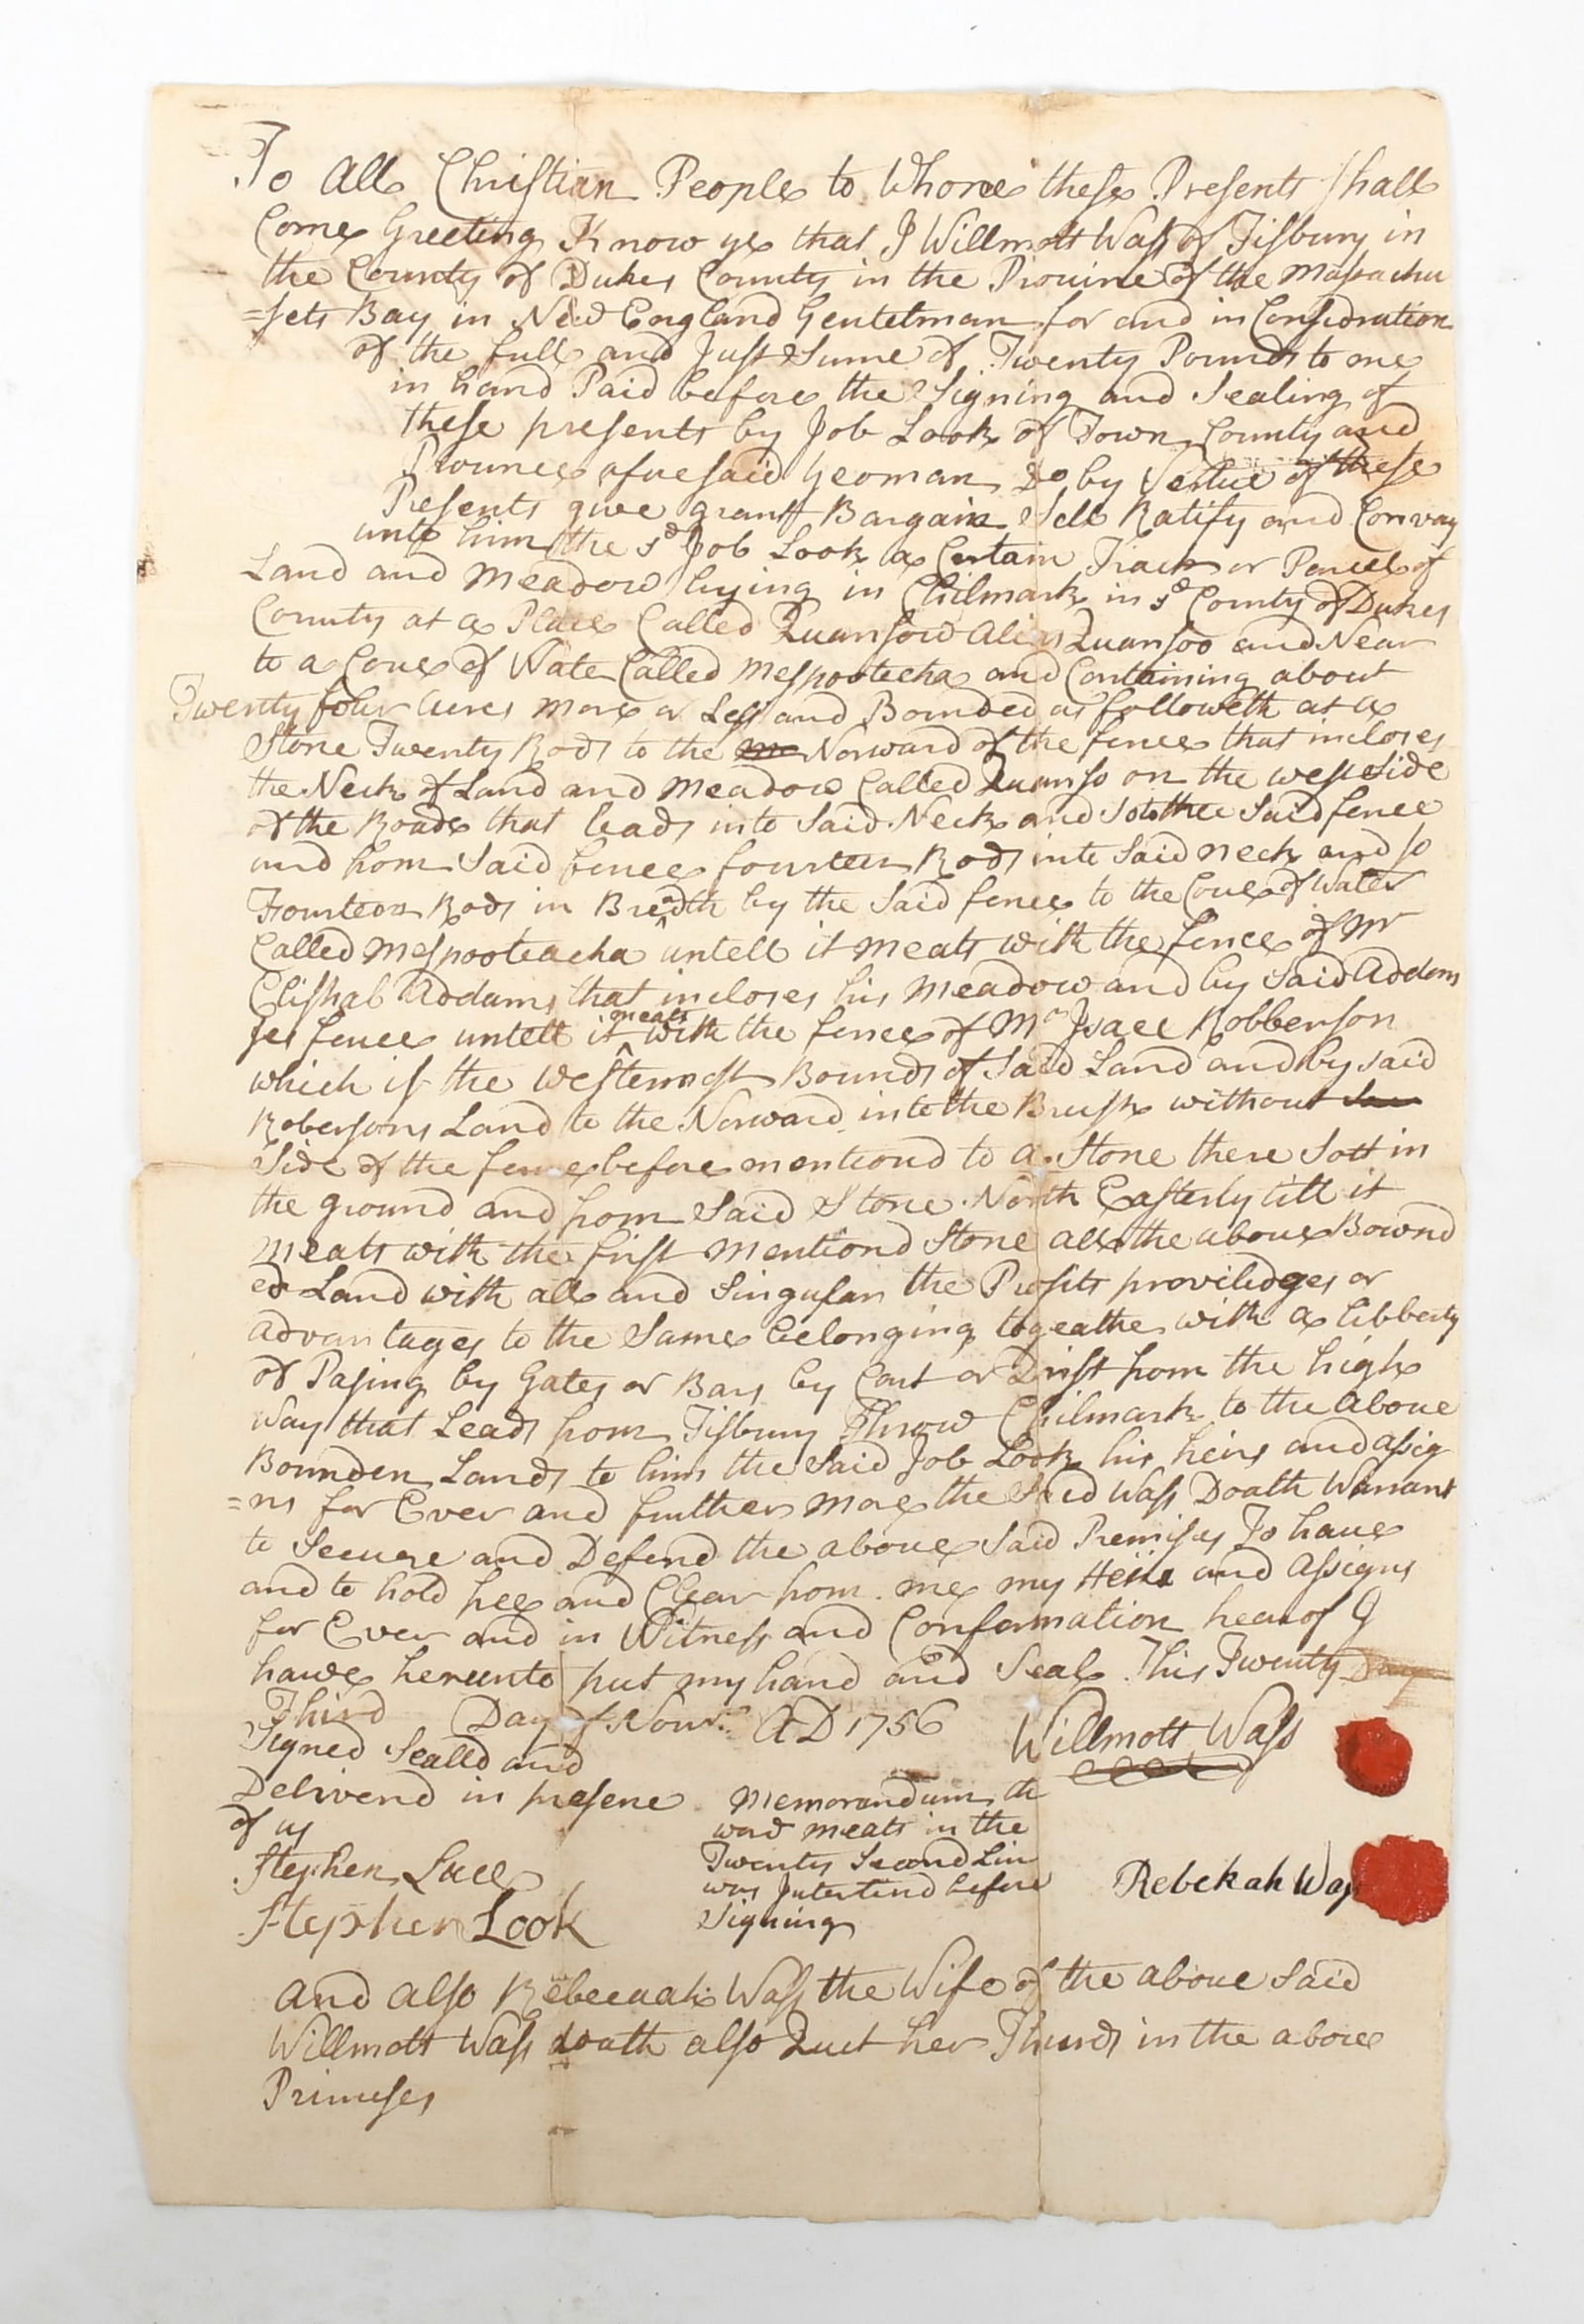 To All Christian People to Whome these Presents shall
Come Greeting Know ye that I Willmott Wass of Tisbury in
the County of Dukes County in the Prouince of the Massachu
=sets Bay in New England Gentelman for and in Considration
of the full and Just Sume of Twenty Pounds to me
in hand Paid before the Signing and Sealing of
these presents by Job Look of Town County and
Prounce afuresaid Yeoman Do by Vertue of these
Presents give grant Bargain Sell Ratify and Convay
unto him the sd Job Look a Certain Track or Parcel of
Land and Meadow lying in Chilmark in sd County of Dukes
County at a Place Called Quansow Alias Quansoo and Near
to a Coue of Water Called Mespootecha and Containing about
Twenty four Acres more or Less and Bounded as followeth at a
Stone Twenty Rods to the Norward of the fence that incloses
the Neck of Land and Meadow Called Quanso on the west Side
of the Roade that leads into Said Neck and so to the Said fence
and from Said fence fourteen Rods into Said neck and so
Fourteen Rods in Breadth by the Said fence to the Coue of Water
Called Mespooteacha untell it meats with the fence of Mr
Elishab Addams that incloses his Meadow and by Said Addam
ses fence untell it meats with the fence of Mr Isaee Robberson
which is the westernost Bounds of Said Land and by said
Robersons Land to the Norward into the Brush without
Side of the fence before mentiond to a Stone there Sott in
the ground and from Said Stone North Easterly till it
meats with the first mentiond Stone all the aboue Bownd
ed Land with all and Singular the Profits proviledges or
advantages to the Same belonging togeather with a libberty
of Pasing by Gates or Bars by Cart or Drift from the high
Way that Leads from Tisbury Throw Chilmark to the Aboue
Bounden Lands to him the Said Job Look his heirs and assig
=ns for Ever and further more the Said Wass Doath Warrant
to Secuere and Defend the aboue Said Premises To haue
and to hold free and Clear from me my Heirs and Assigns
for Ever and in Witness and Conformation hearof I
haue herunto put my hand and Seal This Twenty Day
Third Day of Novr AD 1756 Willmott Wass
Signed Sealld and
Deliverd in presene
of us
Stephen Luce
Stephen Look
Memorandum the
word meats in the
Twenty Second Line
was Interlind before
Signing
Rebekah Wass
And also Rebecaah Wass the Wife of the aboue Said
Willmott Wass doath also Quet her Thirds in the aboue
Primeses